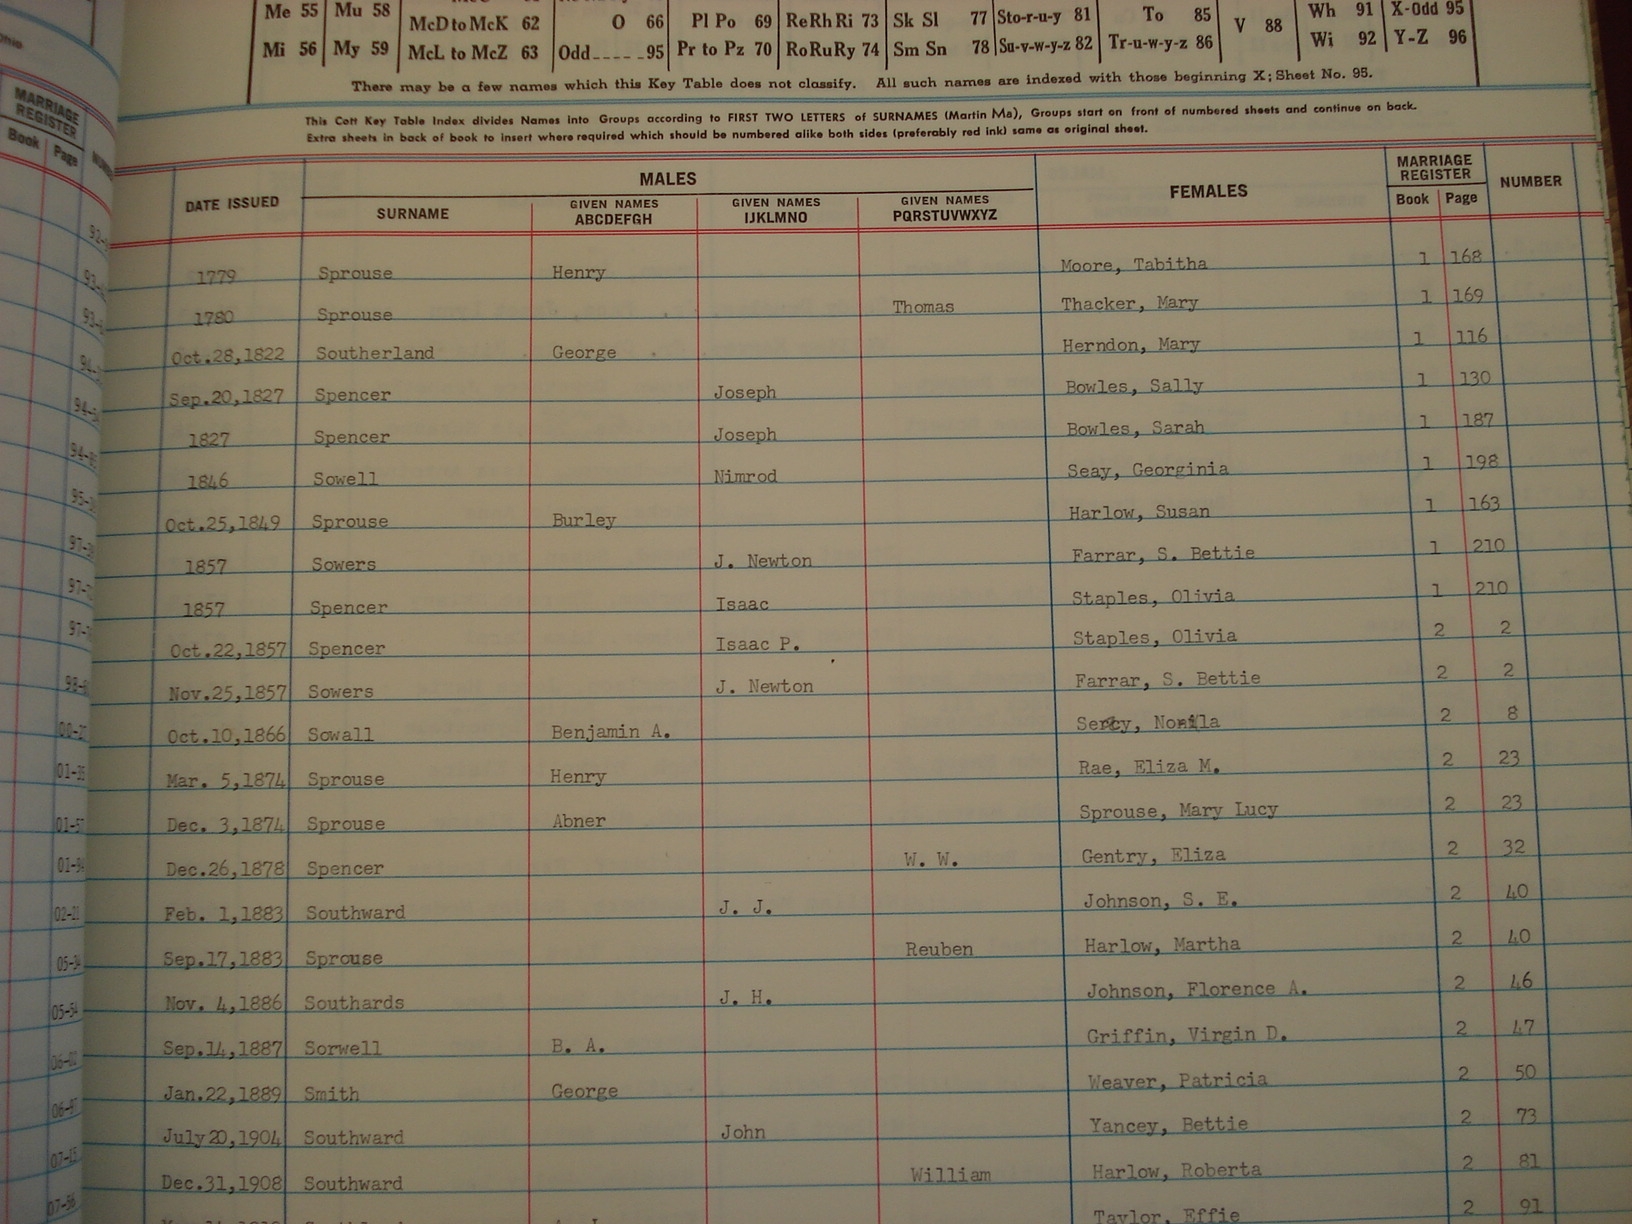 Me 55 Mu 58 McD to McK 62 O 66 Pl Po 69 Re Rh Ri 73 Sk Sl 77 Sto-r-u-y 81 To 85 V 88 Wh 91 X-Odd 95
Mi 56 My 59 McL to McZ 63 Odd 95 Pr to Pz 70 Ro Ru Ry 74 Sm Sn 78 Su-v-w-y-z 82 Tr-u-w-y-z 86 Wi 92 Y-Z 96
There may be a few names which this Key Table does not classify. All such names are indexed with those beginning X; Sheet No. 95.
This Cott Key Table Index divides Names into Groups according to FIRST TWO LETTERS of SURNAMES (Martin Ma), Groups start on front of numbered sheets and continue on back.
Extra sheets in back of book to insert where required which should be numbered alike both sides (preferably red ink) same as original sheet.
MARRIAGE REGISTER
Book Page
DATE ISSUED MALES FEMALES MARRIAGE REGISTER NUMBER
SURNAME GIVEN NAMES ABCDEFGH GIVEN NAMES IJKLMNO GIVEN NAMES PQRSTUVWXYZ Book Page
1779 Sprouse Henry Moore, Tabitha 1 168
1780 Sprouse Thomas Thacker, Mary 1 169
Oct.28,1822 Southerland George Herndon, Mary 1 116
Sep.20,1827 Spencer Joseph Bowles, Sally 1 130
1827 Spencer Joseph Bowles, Sarah 1 187
1846 Sowell Nimrod Seay, Georginia 1 198
Oct.25,1849 Sprouse Burley Harlow, Susan 1 163
1857 Sowers J. Newton Farrar, S. Bettie 1 210
1857 Spencer Isaac Staples, Olivia 1 210
Oct.22,1857 Spencer Isaac P. Staples, Olivia 2 2
Nov.25,1857 Sowers J. Newton Farrar, S. Bettie 2 2
Oct.10,1866 Sowall Benjamin A. 2 8
Mar. 5,1874 Sprouse Henry Rae, Eliza M. 2 23
Dec. 3,1874 Sprouse Abner Sprouse, Mary Lucy 2 23
Dec.26,1878 Spencer W. W. Gentry, Eliza 2 32
Feb. 1,1883 Southward J. J. Johnson, S. E. 2 40
Sep.17,1883 Sprouse Reuben Harlow, Martha 2 40
Nov. 4,1886 Southards J. H. Johnson, Florence A. 2 46
Sep.14,1887 Sorwell B. A. Griffin, Virgin D. 2 47
Jan.22,1889 Smith George Weaver, Patricia 2 50
July 20,1904 Southward John Yancey, Bettie 2 73
Dec.31,1908 Southward William Harlow, Roberta 2 81
Taylor, Effie 2 91